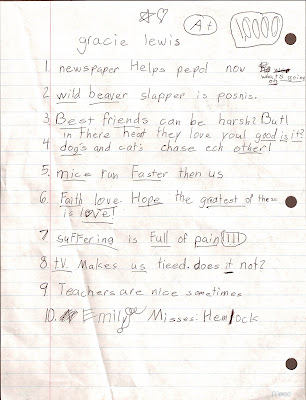 A+
10000
gracie lewis
1. newspaper Helps pepol now
what's going
on
2. wild beaver slapper is posnis.
3. Best friends can be harsh? But!
in there heat they love you! good is it?
4. dog's and cat's chase ech other!
5. mice run Faster then us
6. Faith love Hope the greatest of these
is love!
7 suffering is Full of pain!!!!
8. tv Makes us tieed. does it not?
9. Teachers are nice sometimes
10. Emily Misses: Hemlock